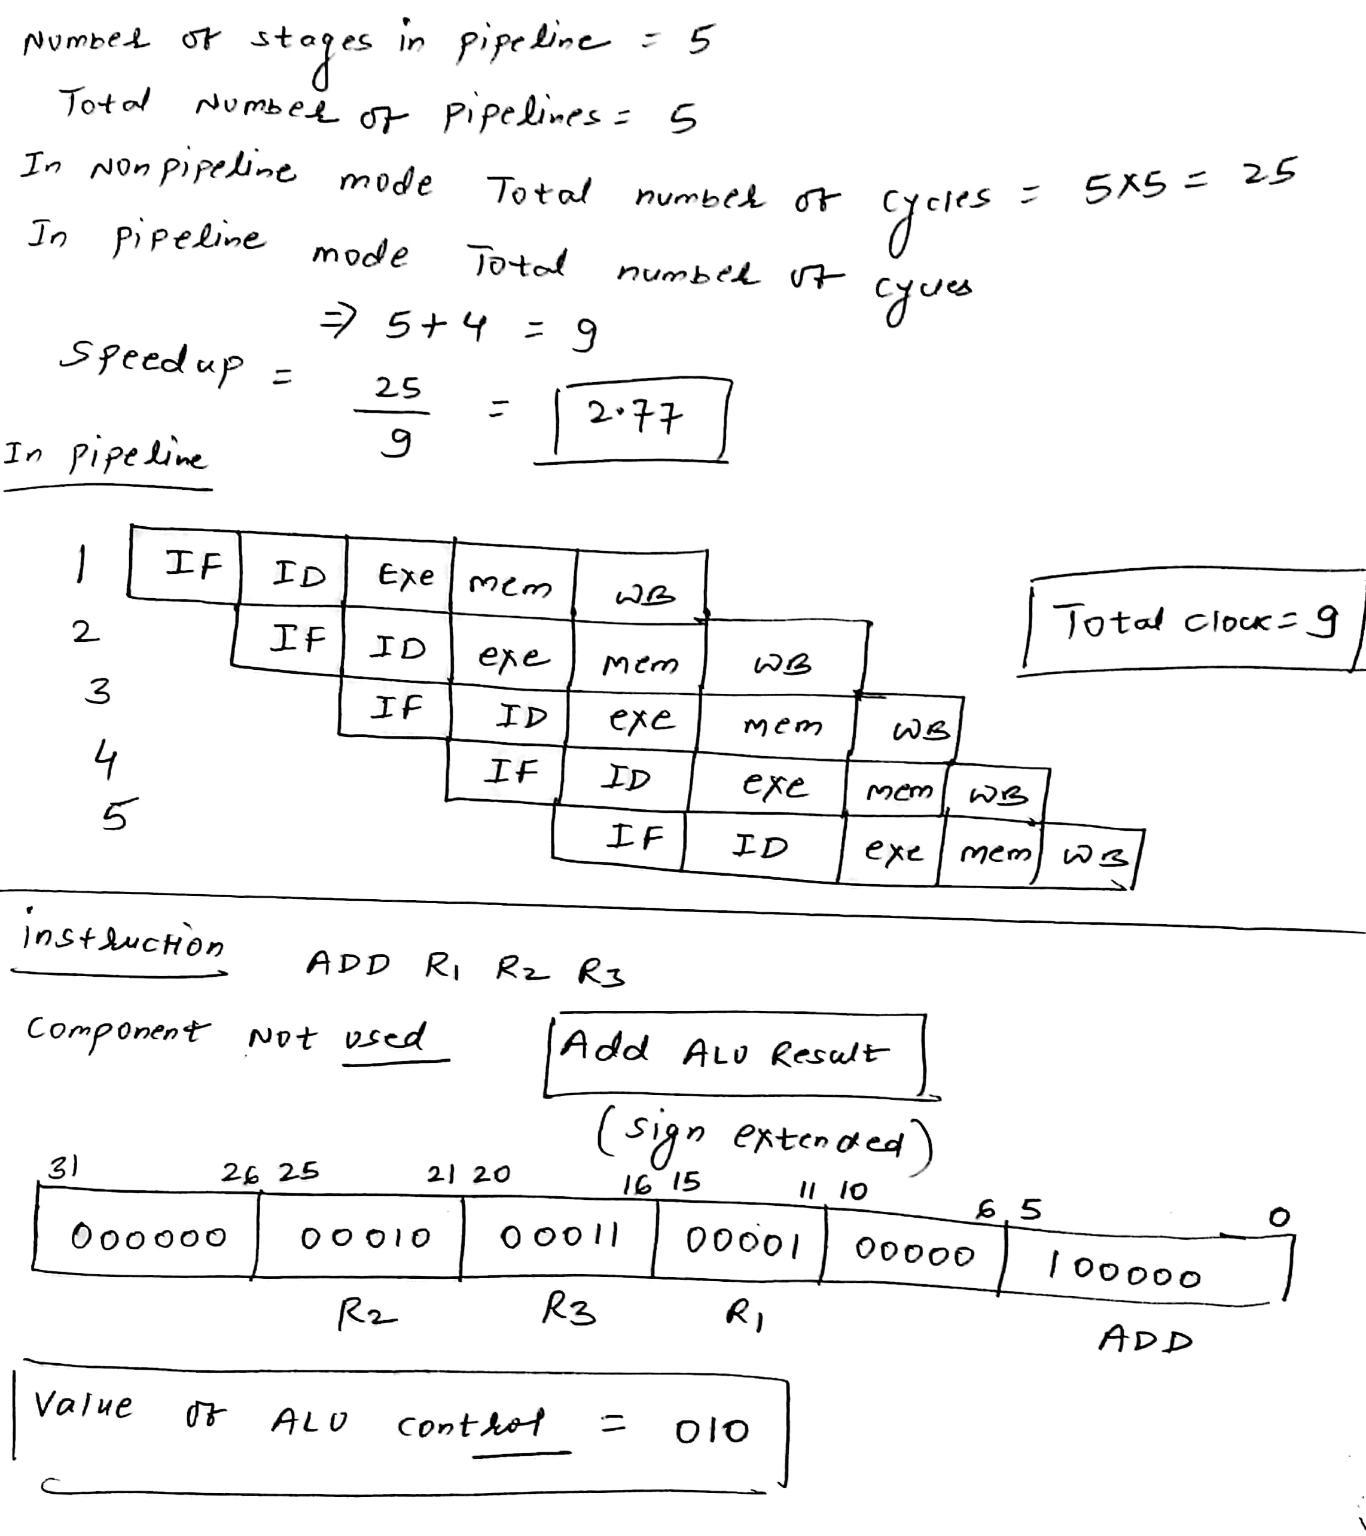 Number of stages in pipeline = 5
Total Number of pipelines = 5
In Nonpipeline mode Total number of cycles = 5x5 = 25
In pipeline mode Total number of cycles
⇒ 5+4 = 9
Speedup = 25/9 = 2.77
In pipeline
1 IF ID Exe mem WB
Total clock = 9
2 IF ID exe mem WB
3 IF ID exe mem WB
4 IF ID exe mem WB
5 IF ID exe mem WB
instruction ADD R1 R2 R3
Component Not used Add ALU Result
(sign extended)
31 26 25 21 20 16 15 11 10 6 5 0
000000 00010 00011 00001 00000 100000
R2 R3 R1 ADD
Value of ALU control = 010